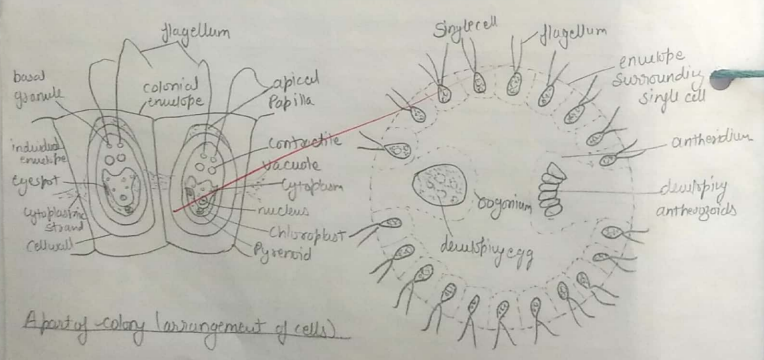 flagellum
basal
granule
colonial
envelope
apical
Papilla
individual
envelope
contractile
vacuole
eyespot
cytoplasm
cytoplasmic
strand
nucleus
Chloroplast
cellwall
Pyrenoid
A part of colony (arrangement of cells)
Single cell
flagellum
envelope
surrounding
single cell
antheridium
developing
antherozoids
oogonium
developing egg